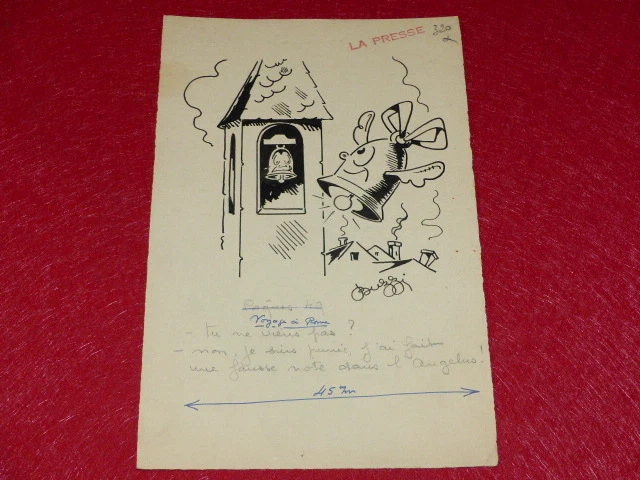 LA PRESSE 320
Pâques 49
Voyage à Rome
tu ne viens pas ?
- non, je suis punie, j'ai fait
une fausse note dans l'Angelus !
45 m